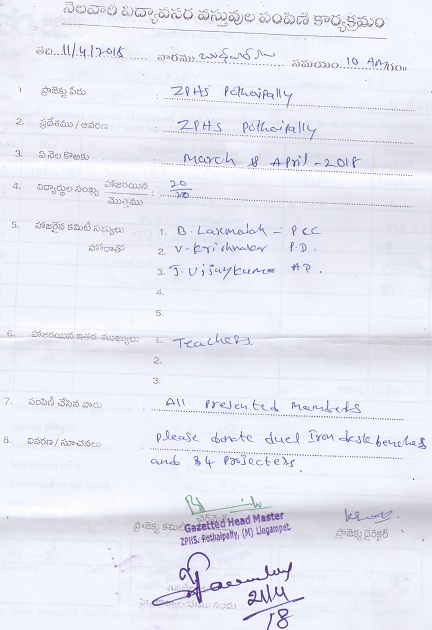 నెలవారి విద్యావసర వస్తువుల పంపిణి కార్యక్రమం
తేది. 11/4/2018 వారము బుధవారం సమయం 10 AM గం॥
1 ప్రాజెక్టు పేరు : ZPHS Pothaipally
2. ప్రదేశము / ఆవరణ : ZPHS Pothaipally
3. ఏ నెల కొఱకు : March & April - 2018
4. విద్యార్థుల సంఖ్య హాజరయిన 20
మొత్తము 20
5. హాజరైన కమిటీ సభ్యులు 1. B. Laxmaiah - PCC
హోదాతో 2. V. Krishnakar P.D.
3. J. Vijaykumar AP.
4.
5.
6. హాజరయిన ఇతర ముఖ్యులు 1. Teachers.
2.
3.
7. పంపిణీ చేసిన వారు : All Presented Members
8. వివరణ / సూచనలు : Please donate duel Iron benches
and Projecters.
ప్రాజెక్టు కమిటీ
Gazetted Head Master
ప్రాజెక్టు డైరెక్టర్
ZPHS. Pothaipally, (M) Lingampet.
21/4
18